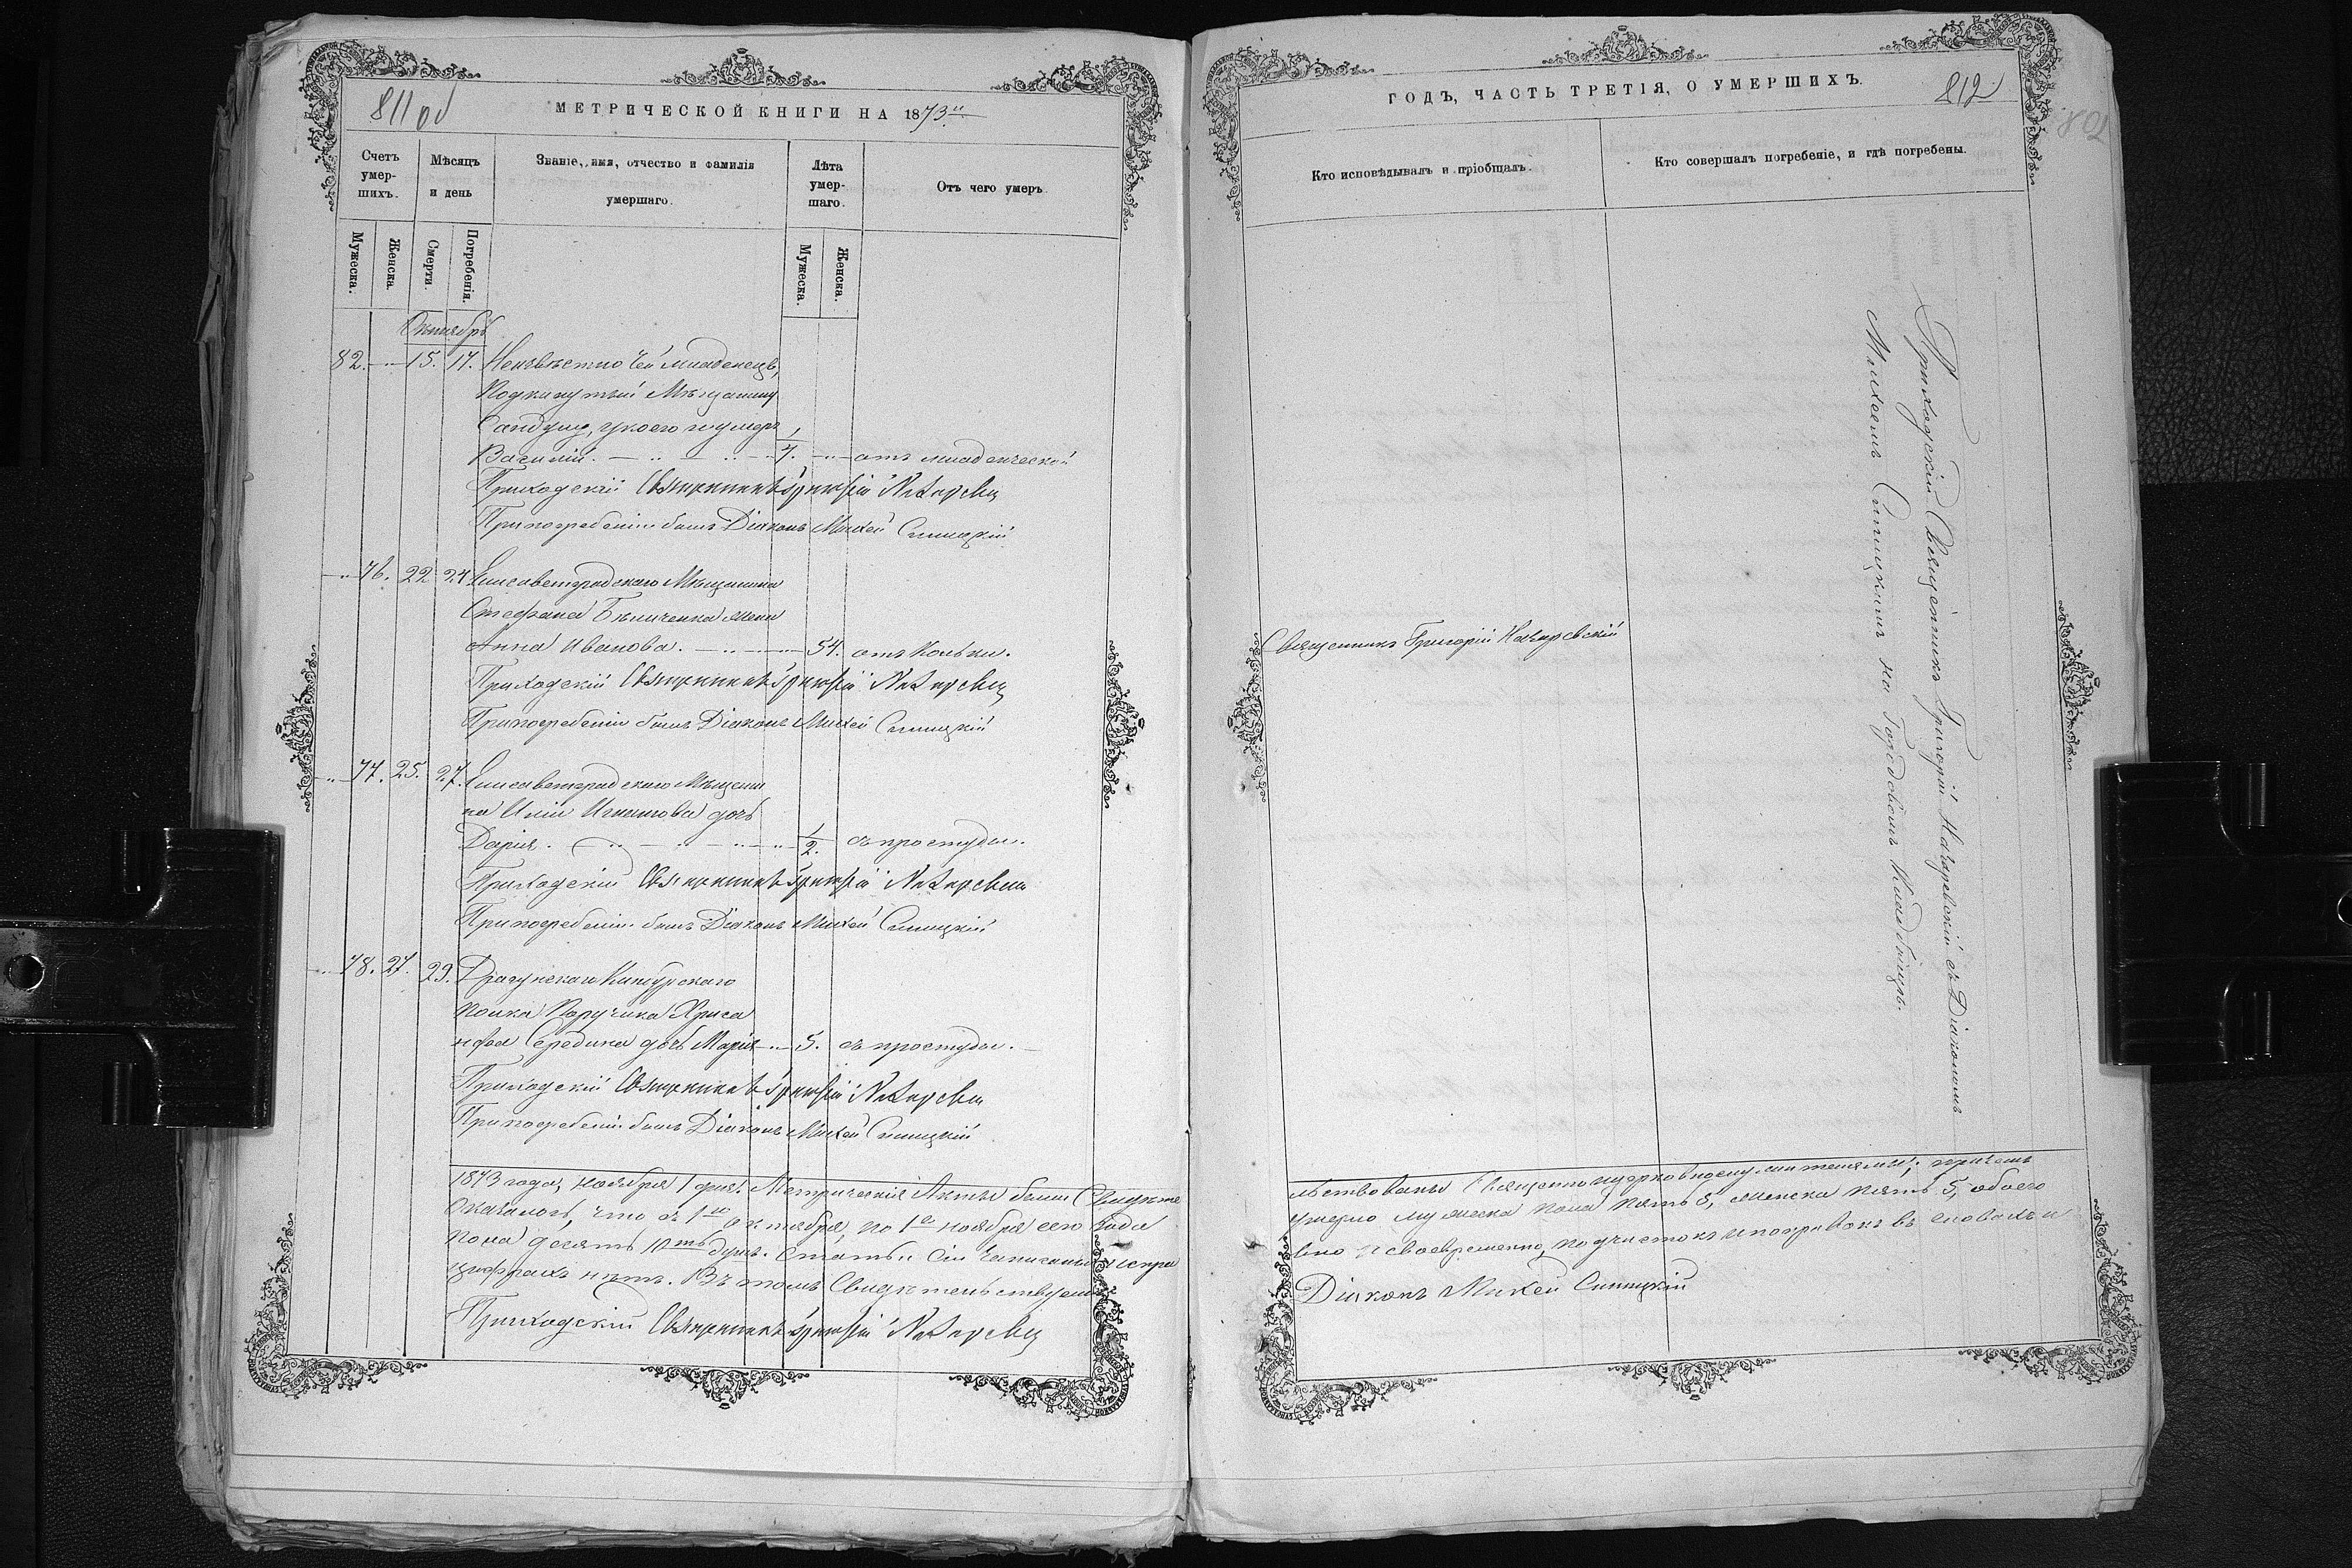 811 об
МЕТРИЧЕСКОЙ КНИГИ НА 1873й
Счетъ умерших.
Мѣсяцъ и день
Званіе, имя, отчество и фамилія умершаго.
Лѣта умершаго.
Отъ чего умеръ
Мужеска.
Женска.
Смерти.
Погребенія.
Мужеска.
Женска.
Октябрь
82. 15. 17. Неизвѣстно чей младенецъ,
подкинутый Мѣщанину
умеръ
Василій. 1/4. отъ младенческой
Приходскій Священникъ Григорій Назаревскій
При погребеніи былъ Діаконъ Михей Синицкій
76. 22 24 Елисаветградскаго Мѣщанина
Стефана Бѣличенка жена
Анна Иванова. 54. отъ Кольки.
Приходскій Священникъ Григорій Назаревскій
При погребеніи былъ Діаконъ Михей Синицкій
77. 25. 27. Елисаветградскаго Мѣщани
на Иліи Игнатова дочь
Дарія. 1/2. съ простуды.
Приходскій Священникъ Григорій Назаревскій
При погребеніи былъ Діаконъ Михей Синицкій
78. 27. 29. Драгунскаго Кинбурскаго
полка Поручика Хриса
нфа Середина дочь Марія 5. съ простуды.
Приходскій Священникъ Григорій Назаревскій
При погребеніи былъ Діаконъ Михей Синицкій
1873 года, Ноября 1 дня. Метрическія Акты были Свидѣте
Оказалось, что съ 1го октября, по 1е ноября сего года
пола десять 10ть душъ. Статьи сіи записаны испра
цифрахъ нѣтъ. Въ томъ Свидѣтельствуемъ
Приходскій Священникъ Григорій Назаревскій
ГОДЪ, ЧАСТЬ ТРЕТІЯ, О УМЕРШИХЪ.
812
802
Кто исповѣдывалъ и пріобщалъ.
Кто совершалъ погребеніе, и гдѣ погребены.
Священникъ Григорій Назаревскій
Приходскій Священникъ Григорій Назаревскій съ Діакономъ
Михеемъ Синицкимъ на Городовомъ Кладбищѣ.
льствованы Священноцерковнослужителями; причемъ
умерло мужеска пола пять 5, женска пять 5, обоего
вно и своевременно, подчистокъ и поправокъ въ словахъ и
Діаконъ Михей Синицкій